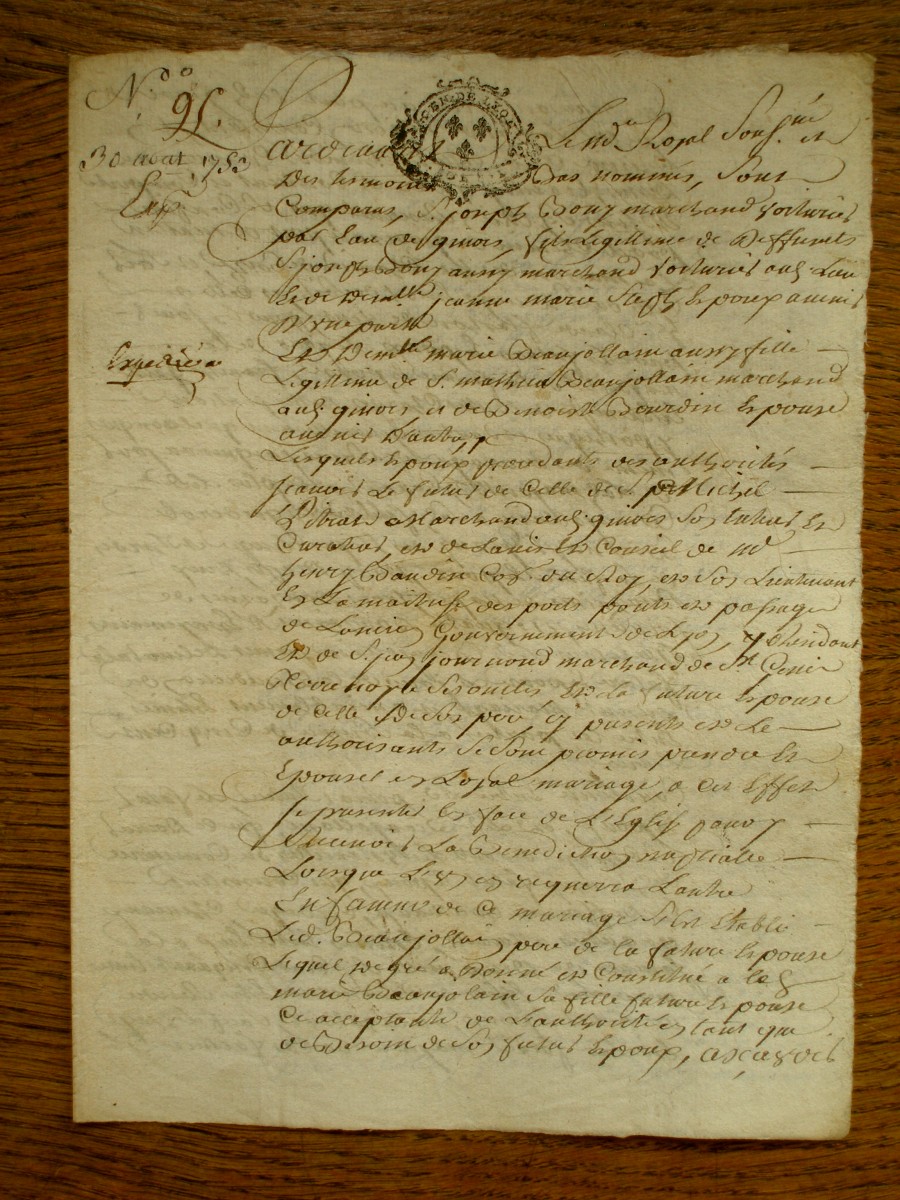 N.o
91.
30 aout 1753
Exp.
GEN. DE LYON
Pardevant Le nd.re Royal Sous.né et
Des temoins bas nommés, Sont
Comparus, S. joseph Douy marchand voiturier
par Eau de givors, fils Legittime de Deffunts
S. joseph Douy aussy marchand voiturier aud. Lieu
Et de Dem.lle jeanne marie Epoux avenir
D'une part
Expediée
Et Dem.lle marie Beaujollain aussy fille
Legittime de S. mathieu Beaujollain marchand
aud. givors, et de Benoiste Bourdin Epouse
avenir D'autre,
Lesquels Epoux procedants des authorités
scavoir Le futur de Celle de S.r Michel
Marchand aud. givors Son tuteur Et
Curateur, et de Lavis et Conseil de m.e
henry Baudin Con. du Roy, et Son Lieutenant
En La maitrise des ports ponts et passage
de Gouvernement de Lyon,
Et de S. journoud marchand de S.t
Ses oncles, Et la future Epouse
de Celle De Son pere, cy presents et Le
authorisants Se Sont promis prendre Et
Epouser en Loyal mariage, a cet Effet
Se presenter En face de L'Eglise pour y
Recevoir La Benediction nuptialle
Lorsque L'un en requerra L'autre
En faveur de Ce mariage S'est Etabli
Led. Beaujollain pere de la future Epouse
Lequel De gré a Donné et Constitué a lad.
marie Beaujolain Sa fille future Epouse
Ce acceptante de L'authorité en tant que
de Besoin de Son futur Epoux, ascavoir